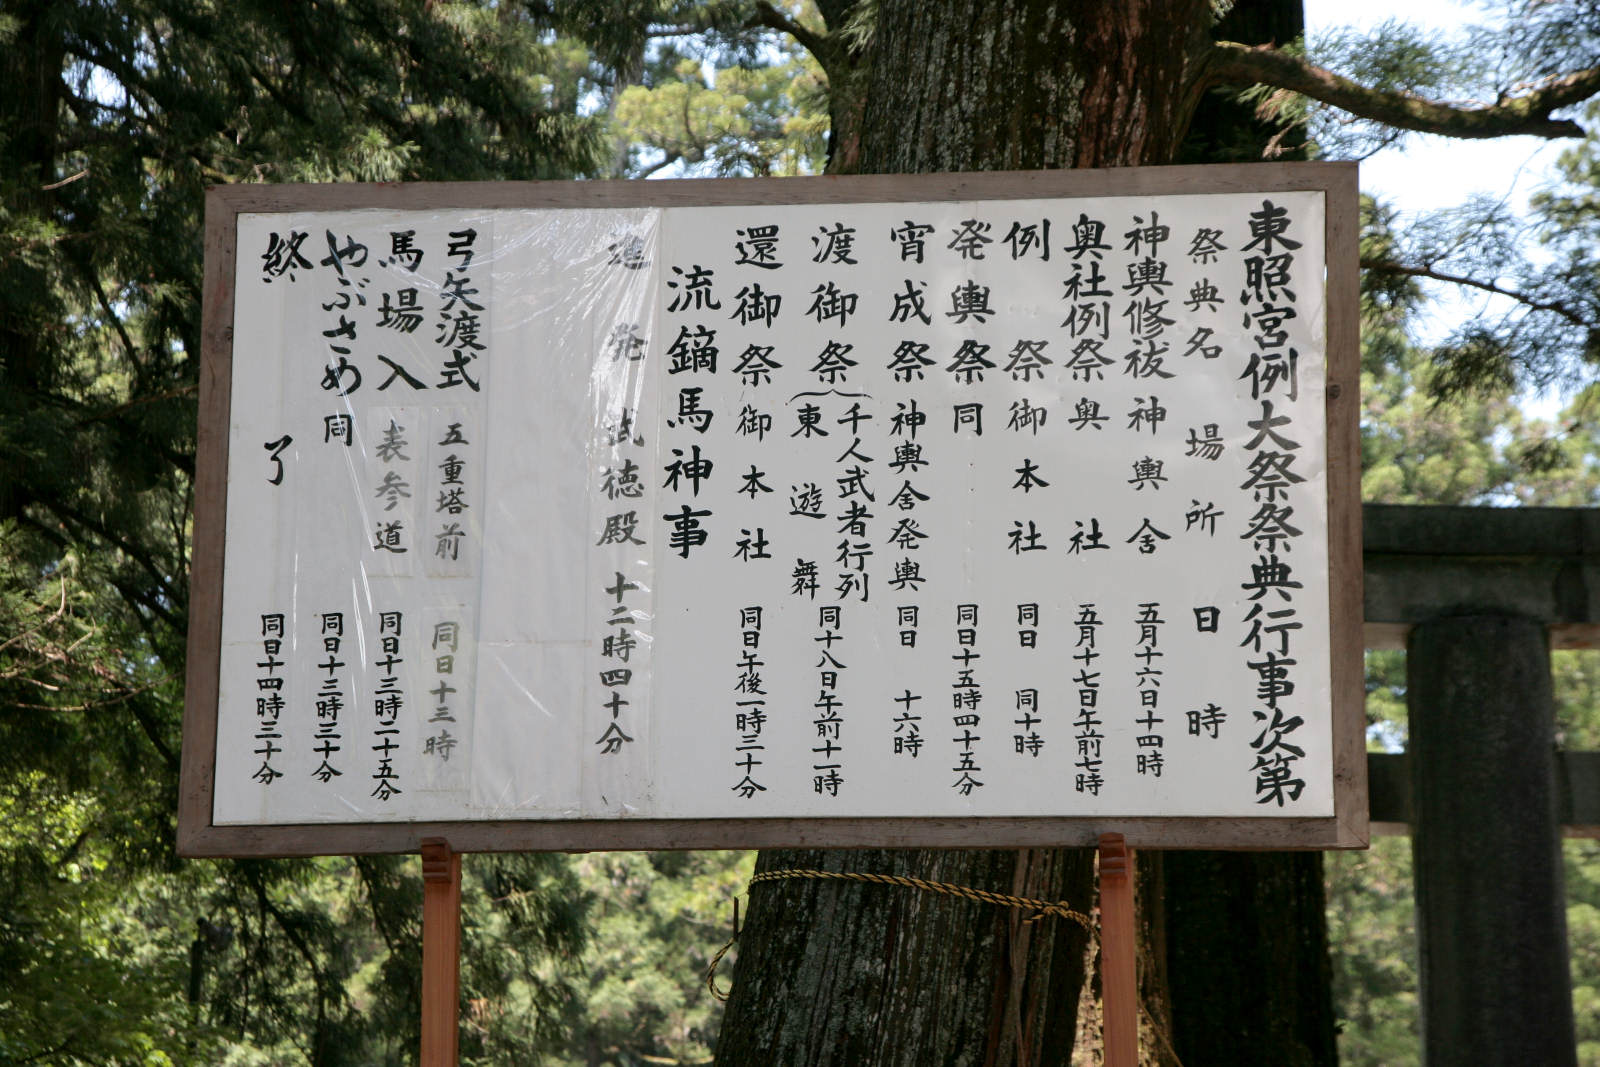 東照宮例大祭祭典行事次第
祭典名 場所 日時
神輿修祓 神輿舍 五月十六日十四時
奥社例祭 奥社 五月十七日午前七時
例祭 御本社 同日 同十時
発輿祭 同 同日十五時四十五分
宵成祭 神輿舍発輿 同日 十六時
渡御祭 千人武者行列 東遊舞 同十八日午前十一時
還御祭 御本社 同日午後一時三十分
流鏑馬神事
進発 武徳殿 十二時四十分
弓矢渡式 五重塔前 同日十三時
馬場入 表参道 同日十三時二十五分
やぶさめ 同 同日十三時三十分
終了 同日十四時三十分